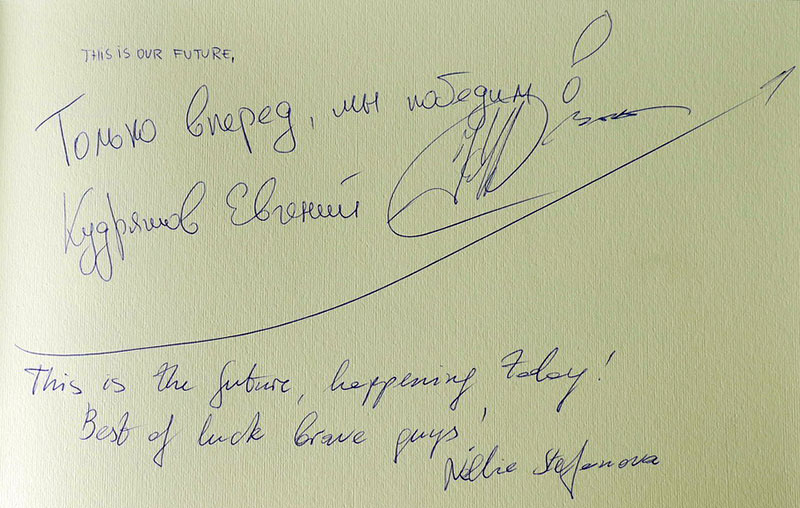 THIS IS OUR FUTURE,
Только вперед, мы победим!
Кудряшов Евгений
This is the future, happening today!
Best of luck brave guys!
Nellie Stefanova